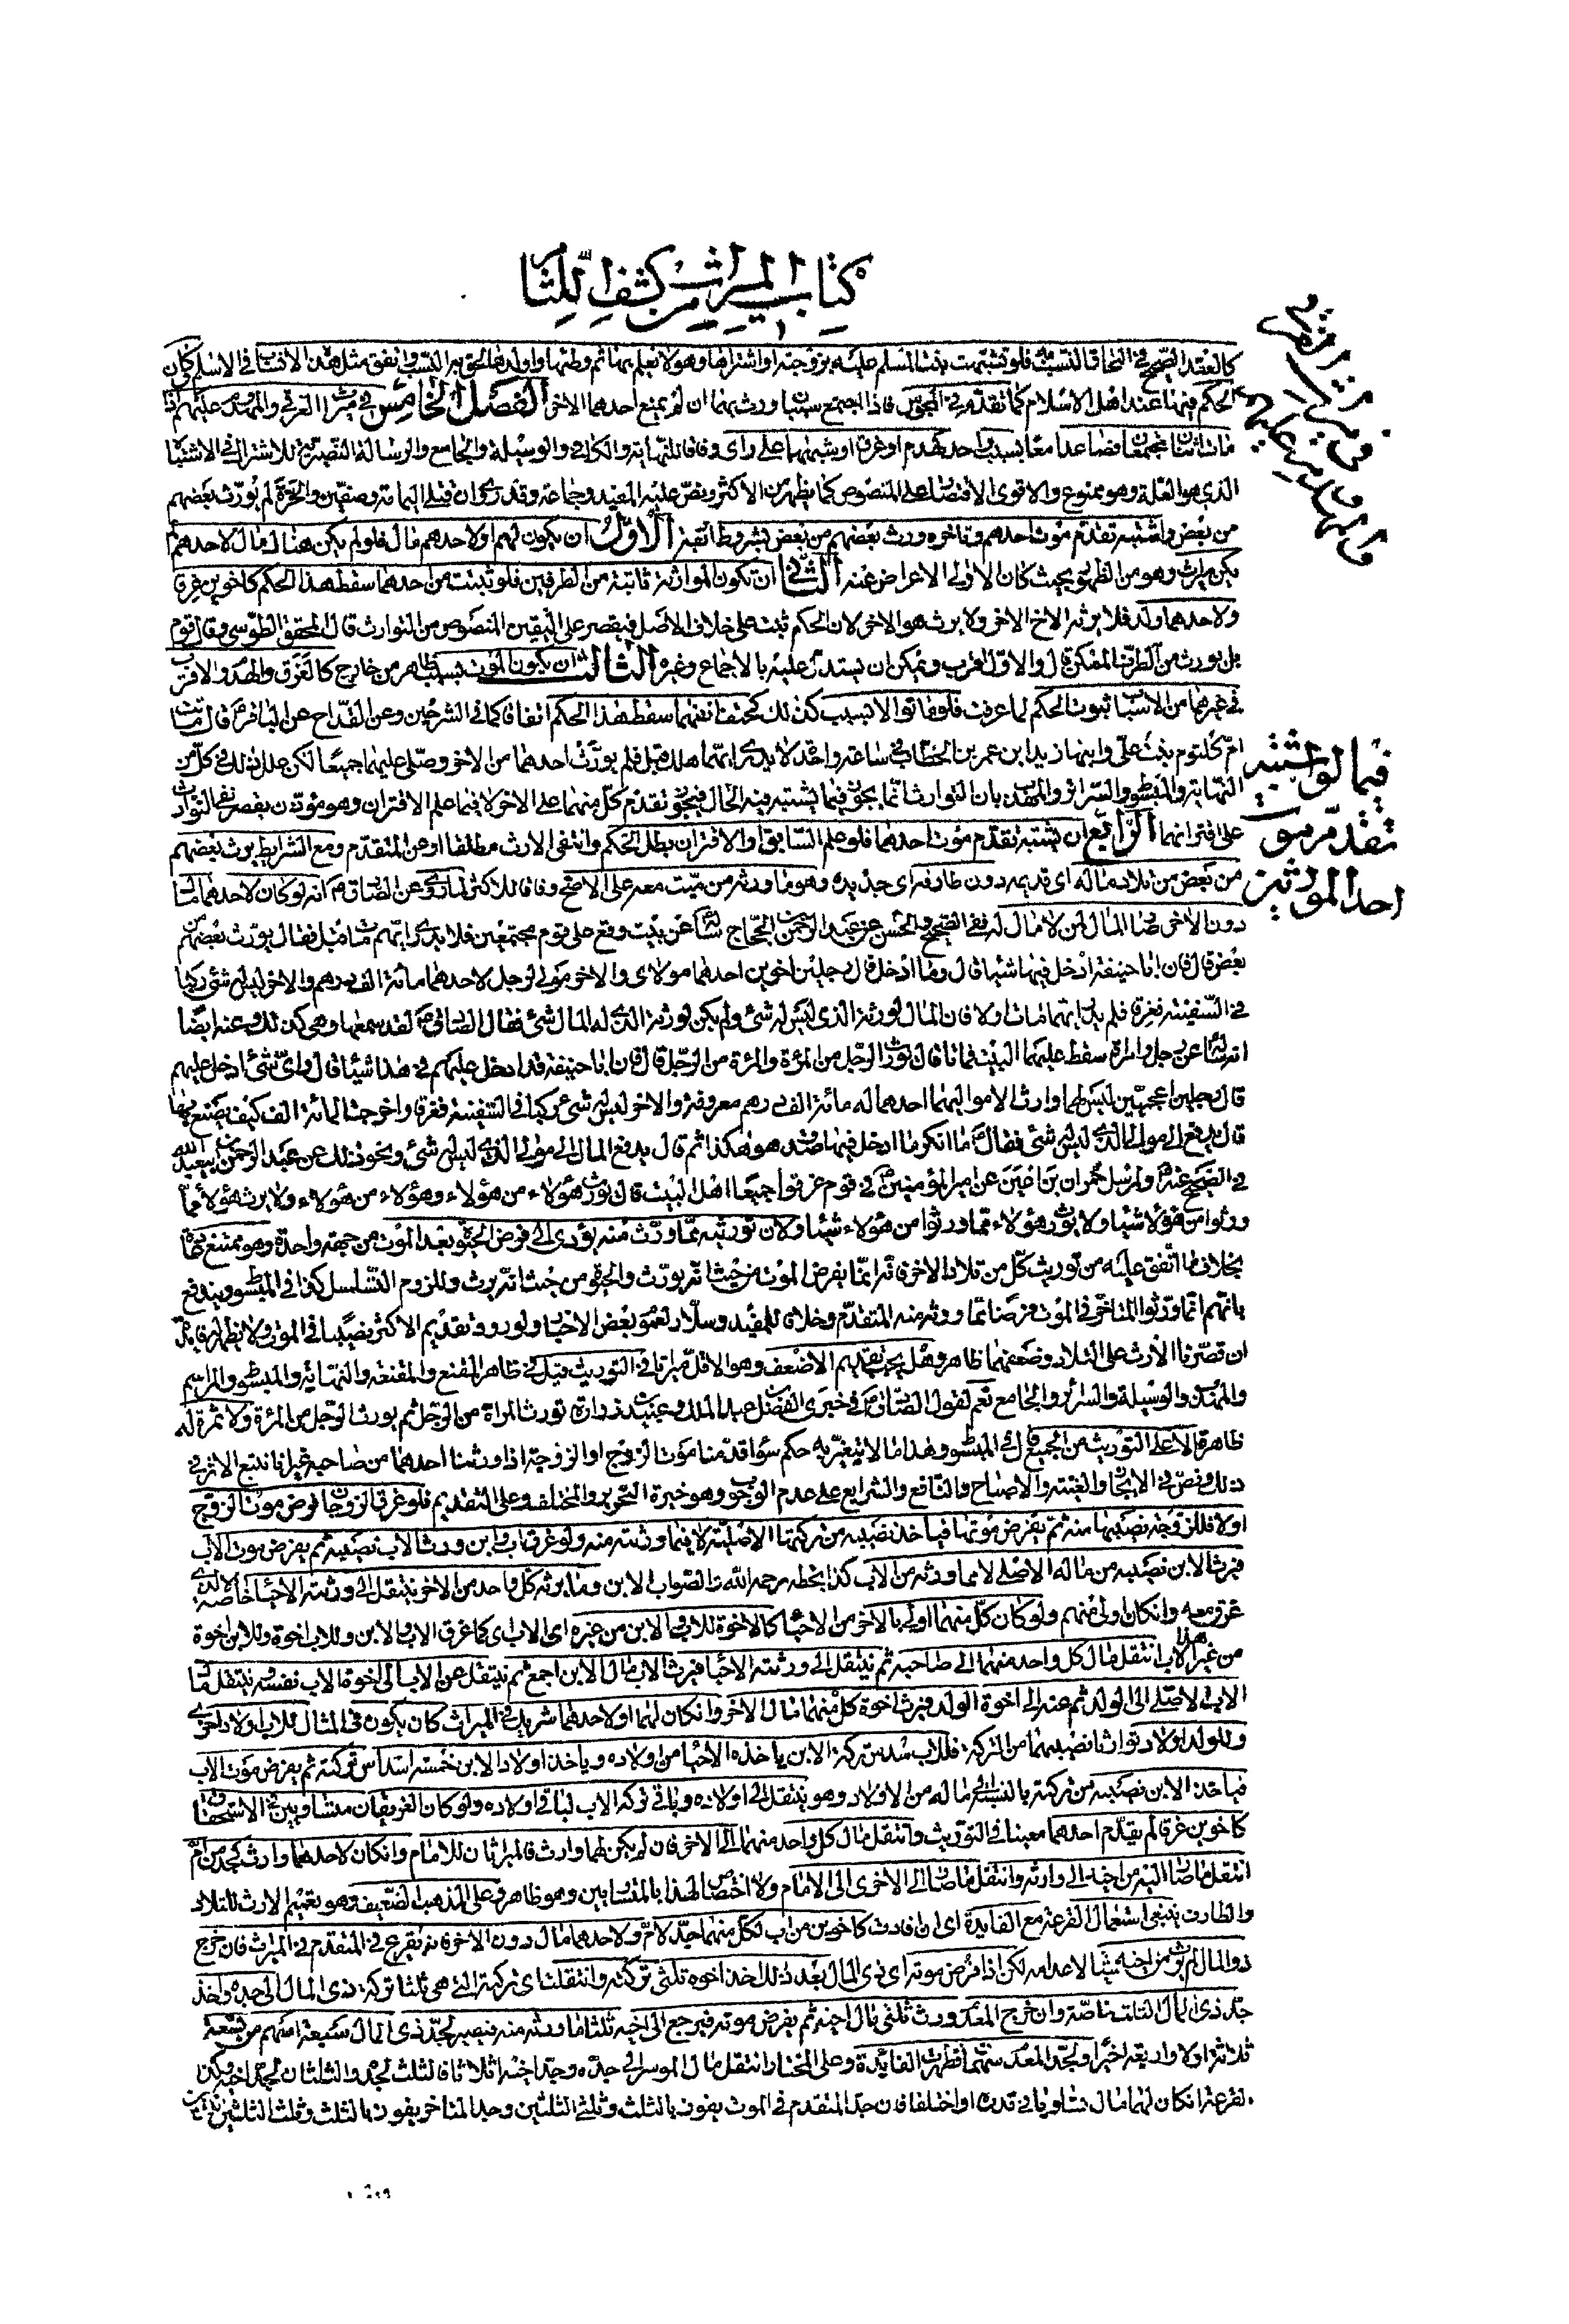 كتاب الميراث من كشف اللثام
كالعقد الصحيح في الحاق النسب به فلو تشبهت بنت المسلم عليه بزوجته او اشتراها وهو لا يعلم بها ثم وطئها واولدها لحق به النسب وان اتفق مثل هذه الانساب في الاسلم كان
الحكم فيها عند اهل الاسلام كما تقدم في المجوس فاذا اجتمع سببان ورث بهما ان لم يمنع احدهما الاخر الفصل الخامس في ميراث الغرقى والمهدوم عليهم اذا
مات اثنان مجتمعان فصاعدا معا بسبب واحد كهدم او غرق او شبههما على راى وفاقا للنهاية والكافي والوسيلة والجامع والرسالة النصيرية للاشتراك في الاشتباه
الذي هو العلة وهو ممنوع والاقوى الاقتصار على المنصوص كما يظهر من الاكثر ونص عليه المفيد وجماعة وقد روى ان قتلى اليمامة وصفين والحرة لم يورث بعضهم
من بعض واشتبه تقدم موت احدهم وتاخره ورث بعضهم من بعض بشروط اربعة الاول ان يكون لهم او لاحدهم مال فلو لم يكن هناك مال لاحدهم لم
يكن ميراث وهو من الظهور بحيث كان الاولى الاعراض عنه الثاني ان تكون الموارثة ثابتة من الطرفين فلو ثبتت من احدهما سقط هذا الحكم كاخوين غرقا
ولاحدهما ولد فلا يرثه الاخ الاخر ولا يرث هو الاخر لان الحكم ثبت على خلاف الاصل فيقصر على اليقين المنصوص من التوارث قال المحقق الطوسي وقال قوم
بل يورث من الطرف الممكن قال والاول اقرب ويمكن ان يستدل عليه بالاجماع وغيره الثالث ان يكون الموت بسبب ظاهر من خارج كالغرق والهدم والاقرب
في غيرهما من الاسباب ثبوت الحكم لما عرفت فلو ماتوا لا بسبب كذلك كحتف انفهما سقط هذا الحكم اتفاقا كما في الشرحين وعن القداح عن الباقر ع قال ماتت
ام كلثوم بنت علي وابنها زيد ابن عمر بن الخطاب في ساعة واحدة لا يدرى ايهما هلك قبل فلم يورث احدهما من الاخر وصلى عليهما جميعا لكن علل ذلك في كل من
النهاية والمبسوط والسرائر والمهذب بان التوارث انما يجوز فيما يشتبه فيه الحال فيجوز تقدم كل منهما على الاخر لا فيما علم الاقتران وهو مؤذن بقصر نفي التوارث
على اقترانهما الرابع ان يشتبه تقدم موت احدهما فلو علم السابق او الاقتران بطل الحكم وانتفى الارث مطلقا او عن المتقدم ومع الشرايط يرث بعضهم
من بعض من تلاد ماله اي قديمه دون طارفه اي جديده وهو ما ورثه من ميت معه على الاصح وفاقا للاكثر لما روى عن الصادق ع انه لو كان لاحدهما مال
دون الاخر صار المال لمن لا مال له ففي الصحيح والحسن عن عبد الرحمن بن الحجاج سئله عن بيت وقع على قوم مجتمعين فلا يدرى ايهم مات قبل فقال يورث بعضهم من
بعض قال فان ابا حنيفة ادخل فيها شيئا قال وما ادخل قال رجلين اخوين احدهما مولاى والاخر مولى لرجل لاحدهما مائة الف درهم والاخر ليس له شئ ركبا
في السفينة فغرقا فلم يدر ايهما مات اولا فان المال لورثة الذي ليس له شئ ولم يكن لورثة الذي له المال شئ فقال الصادق ع لقد سمعها وهي كذلك وعنه ايضا
انه سئله عن رجل وامراة سقط عليهما البيت فماتا قال يورث الرجل من المراة والمراة من الرجل قال فان ابا حنيفة قد ادخل عليكم في هذا شيئا قال واى شئ ادخل عليهم
قال رجلين اعجميين ليس لهما وارث الا مواليهما احدهما له مائة الف درهم معروفة والاخر ليس له شئ ركبا في السفينة فغرقا واخرجت المائة الف كيف يصنع بها
قال يدفع الى موالي الذي ليس له شئ فقال ع ما انكر ما ادخل فيها صدق وهو هكذا ثم قال يدفع المال الى موالي الذي ليس له شئ ونحو ذلك عن عبد الرحمن
في الصحيح عنه ع ولمرسل حمران بن اعين عن امير المؤمنين ع في قوم غرقوا جميعا اهل البيت قال يورث هؤلاء من هؤلاء وهؤلاء من هؤلاء ولا يرث هؤلاء مما
ورثوا من هؤلاء شيئا ولا يورث هؤلاء مما ورثوا من هؤلاء شيئا ولان توريثه مما ورث منه يؤدي الى فرض الحيوة بعد الموت من جهة واحدة وهو ممتنع عادة
بخلاف ما اتفق عليه من توريث كل من تلاد الاخر فانه انما يفرض الموت من حيث انه يورث والحيوة من حيث انه يرث وللزوم التسلسل كذا في المبسوط ويندفع
بانهم انما ورثوا المتاخر في الموت فرضا مما ورثه منه المتقدم وخلافا للمفيد وسلار لعموم بعض الاخبار ولورود تقديم الاكثر نصيبا في الموت ولا تظهر فائدته
ان قصرنا الارث على التلاد وضعفهما ظاهر وهل يجب تقديم الاضعف وهو الاقل ميراثا في التوريث قيل في ظاهر المقنع والمقنعة والنهاية والمبسوط والمراسم
والمهذب والوسيلة والسرائر والجامع نعم لقول الصادق ع في خبرى الفضل بن عبد الملك وعبيد بن زرارة تورث المراة من الرجل ثم يورث الرجل من المراة ولا ثمرة له
ظاهرة الا على التوريث من الجميع قال في المبسوط وهذا مما لا يتغير به حكم سواء قدمنا موت الزوج او الزوجة اذا ورثنا احدهما من صاحبه غير انا نتبع الاثر في
ذلك ونص في الايجاز والغنية والاصباح والنافع والشرايع على عدم الوجوب وهو خيرة التحرير والمختلف وعلى التقديم فلو غرق الزوجان فرض موت الزوج
اولا فللزوجة نصيبها منه ثم يفرض موتها فياخذ نصيبه من تركتها الاصلية لا فيما ورثته منه ولو غرق اب وابن ورث الاب نصيبه ثم يفرض موت الاب
فيرث الابن نصيبه من ماله الاصلي لا مما ورثه من الاب كذا بخطه رحمه الله والصواب الابن وما يرثه كل واحد من الاخر ينتقل الى ورثته الاحياء خاصة لا الذي
غرق معه وان كان اولى منهم ولو كان كل منهما اولى بالاخر من الاحياء كالاخوة للاب والابن من غيره اى الاب اى كما غرق الاب والابن وللاب اخوة وللابن اخوة
من غير هذا الاب انتقل مال كل واحد منهما الى صاحبه ثم ينتقل الى ورثته الاحياء فيرث الاب مال الابن اجمع ثم ينتقل عن الاب الى اخوة الاب نفسه ينتقل مال
الاب الاصلي الى الولد ثم عنه الى اخوة الولد فيرث اخوة كل منهما مال الاخر وان كان لهما او لاحدهما شريك في الميراث كان يكون في المثال للاب اولاد اخرى
وللولد اولاد توارثا نصيبهما من التركة فللاب سدس تركة الابن ياخذه الاحياء من اولاده وياخذ اولاد الابن خمسة اسداس تركته ثم يفرض موت الاب
فياخذ الابن نصيبه من تركته بالنسبة الى ماله من الاولاد وهو ينتقل الى اولاده وباقي تركة الاب لباقي اولاده ولو كان الغريقان متساويين في الاستحقاق
كاخوين غرقا لم يقدم احدهما معينا في التوريث وانتقل مال كل واحد منهما الى الاخر فان لم يكن لهما وارث فالميراثان للامام وان كان لاحدهما وارث كجد من ام
انتقل ما صار اليه من اخيه الى وارثه وانتقل ما صار الى الاخر الى الامام ولا اختصاص لهذا بالمتساويين وهو ظاهر وعلى المذهب الضعيف وهو تعميم الارث للتلاد
والطارف ينبغي استعمال القرعة مع الفايدة اى ان افادت كاخوين من اب لكل منهما جد لام ولاحدهما مال دون الاخر فانه يقرع في المتقدم في الميراث فان خرج
ذو المال لم يرث من اخيه شيئا لاعدامه لكن اذا فرض موته اى ذى المال بعد ذلك اخذ اخوه ثلثي تركته وانتقلتا اى تركته التي هي ثلثا تركة ذى المال الى جده واخذ
جد ذى المال الثلث خاصة وان خرج المعدم ورث ثلثي مال اخيه ثم يفرض موته فيرجع الى اخيه ثلثا ما ورثه منه فيصير لجد ذى المال سبعة اسهم من تسعة
ثلاثة اولا واربعة اخيرا ولجد المعدم سهمان فظهرت الفايدة وعلى المختار انتقل مال الموسر الى جده وجد اخيه اثلاثا فالثلث لجده والثلثان لجد اخيه
القرعة ان كان لهما مال تساويا في قدره او اختلفا فان جد المتقدم في الموت يفوز بالثلث وثلثي الثلثين وجد المتاخر يفوز بالثلث وثلث الثلثين
في ميراث الغرقى
والمهدوم عليهم
فيما لو اشتبه
تقدم موت
احد المورثين